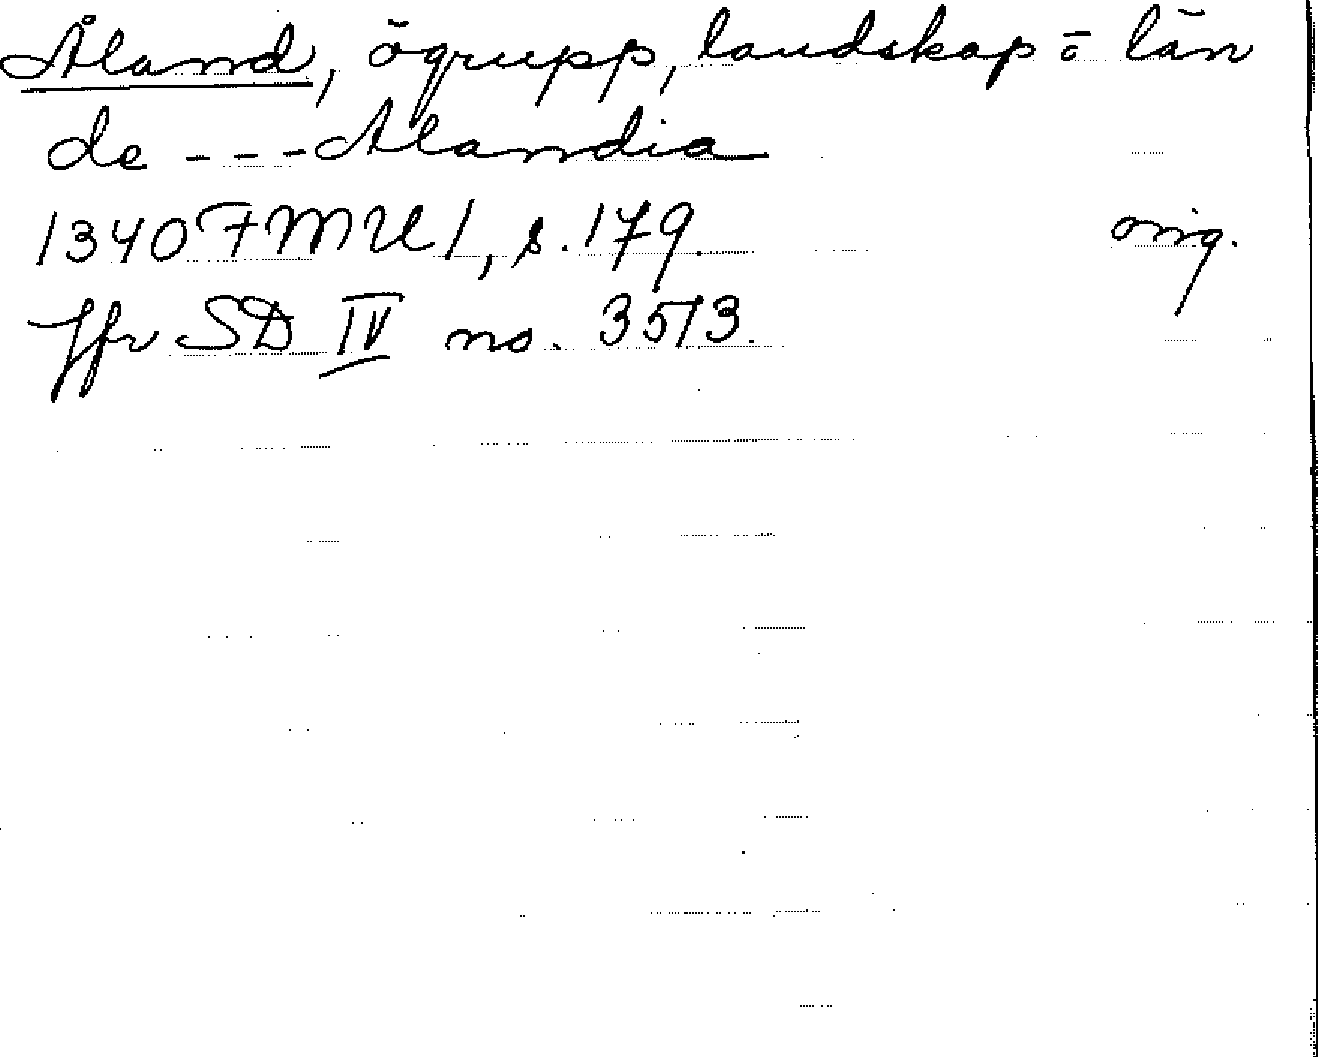 Åland, ögrupp, landskap o län
de --- Alandia
1340 FMU 1, s. 179. orig.
Jfr SD IV no. 3513.